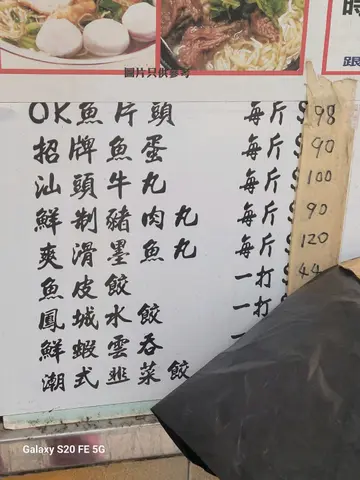 時
跟
圖片只供參考
OK魚片頭 每斤 $98
招牌魚蛋 每斤 $90
汕頭牛丸 每斤 $100
鮮制豬肉丸 每斤 90
爽滑墨魚丸 每斤 120
魚皮餃 一打 $44
鳳城水餃 一打
鮮蝦雲吞 一
潮式韮菜餃
Galaxy S20 FE 5G